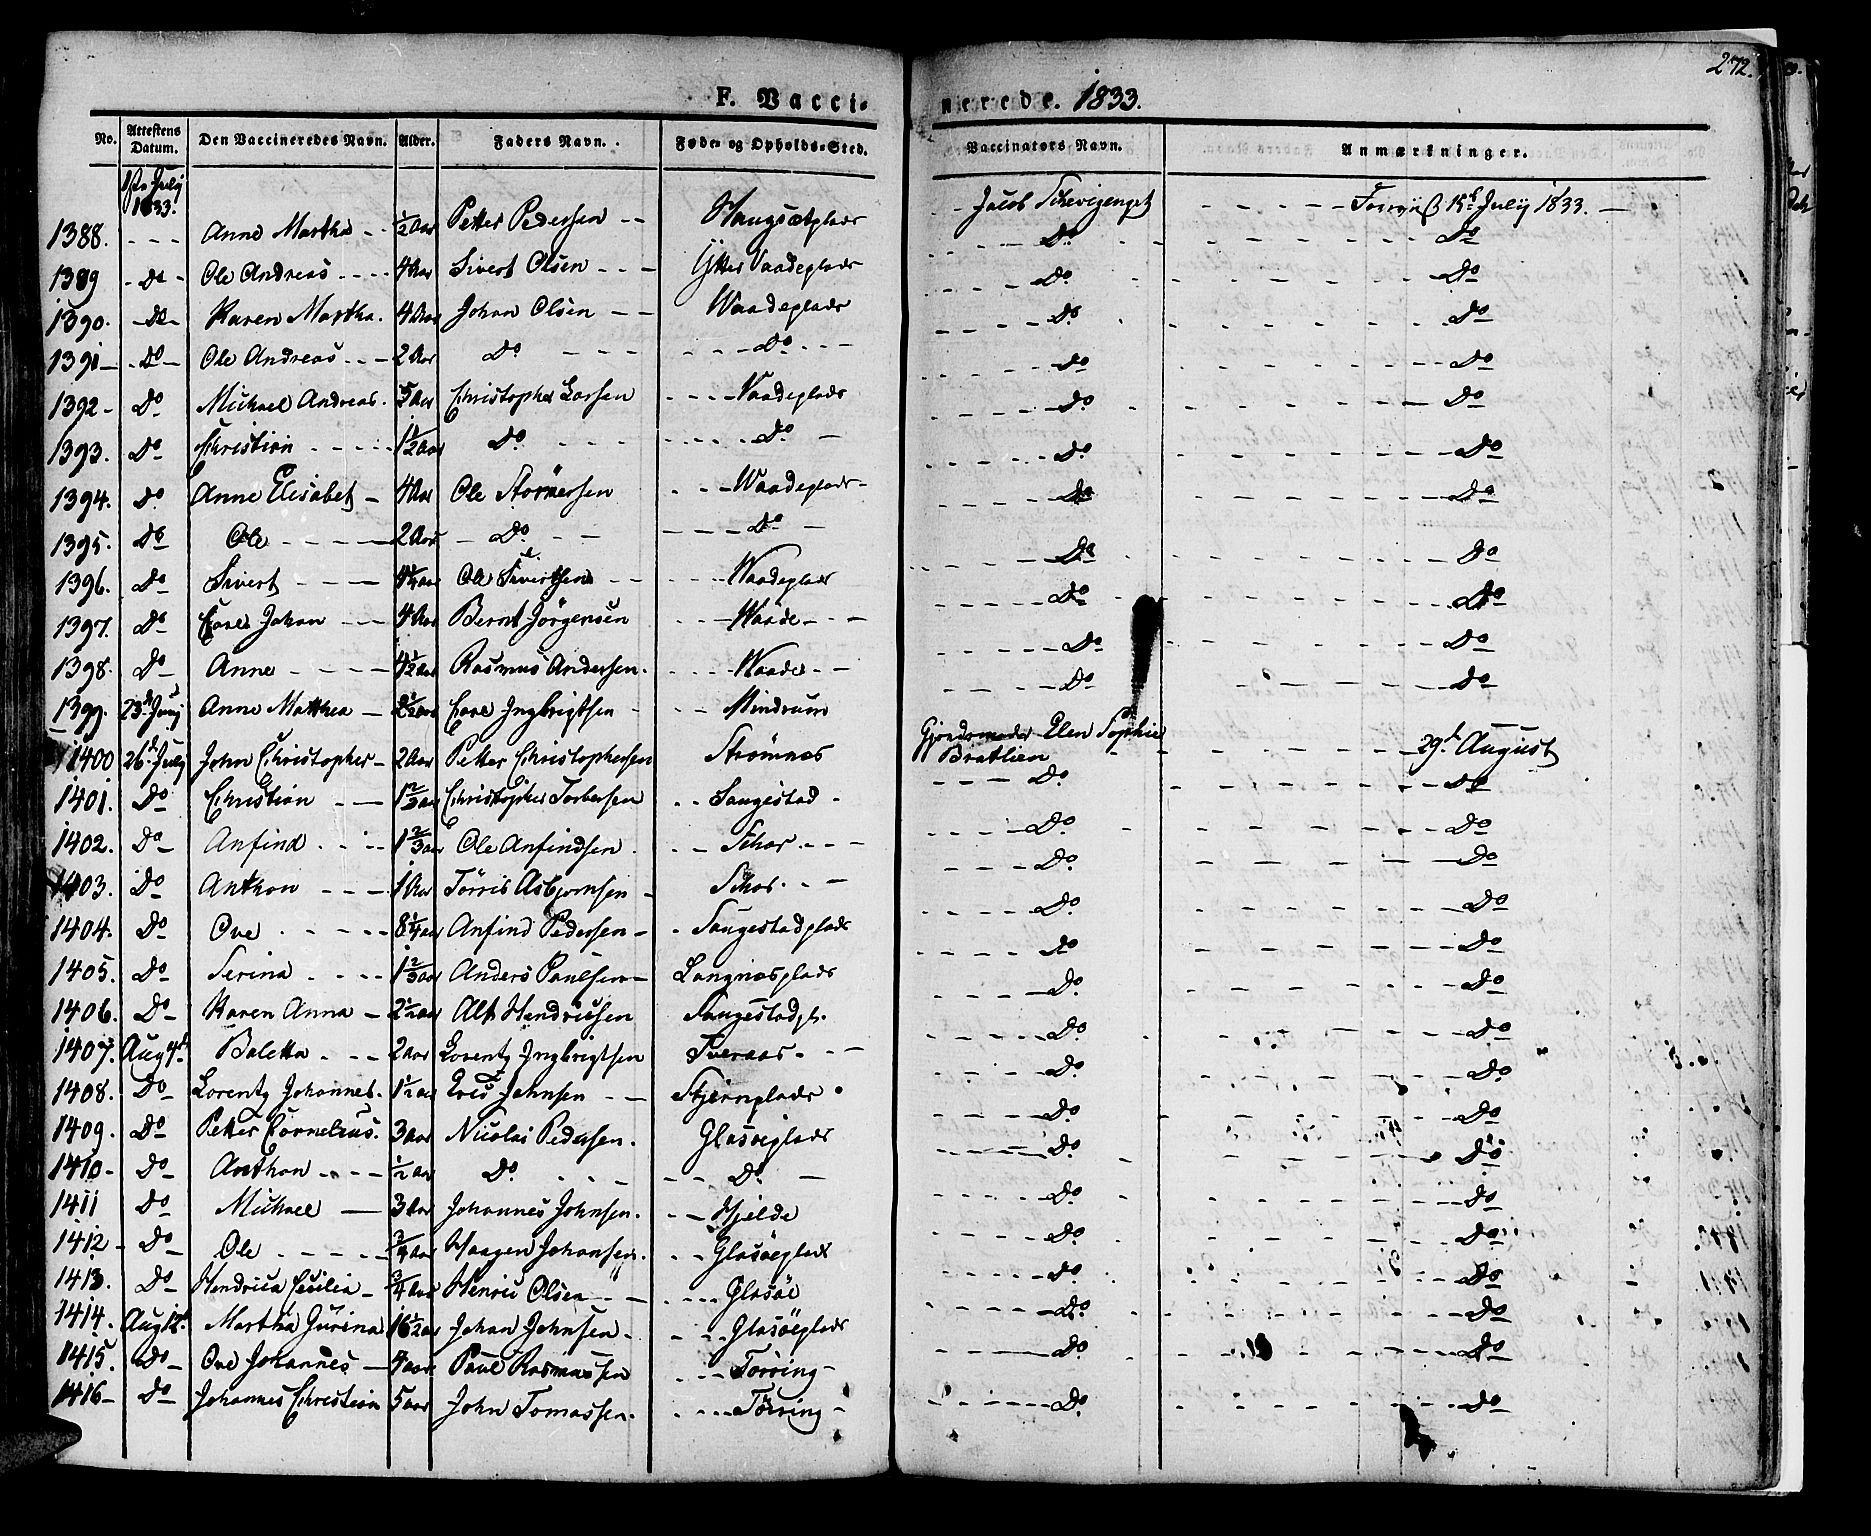 272.
F. Vaccinerede. 1833.
No. Attestens Datum. Den Vaccineredes Navn. Alder. Faders Navn. Føde- og Opholds-Sted. Vaccinators Navn. Anmærkninger.
1ste July 1833.
1388. - - - Anne Martha - - 1/2 Aar Petter Pedersen - - Haugsætplads - - Jacob - - - - 15de July 1833. —
1389 - Do - Ole Andreas - - - - 4 Aar Sivert Olsen - - - Ytter Vaadeplads Do Do
1390. - Do - Karen Martha. 4 Aar Johan Olsen - - Waadeplads Do Do
1391 — Do — Ole Andreas - - — 2 Aar Do - - - Do - - - Do Do
1392 - Do Michael Andreas. 5 Aar Christopher Larsen - - - - Vaadeplads Do Do
1393. Do Christian - - - - 1 1/2 Aar Do - - - Do — Do Do
1394. Do Anne Elisabet — 4 Aar Ole - - - Waadeplads - Do Do
1395. Do Ole - - - - 2 Aar — Do - - Do — Do Do
1396. Do Sivert - - - 4 1/4 aar Ole Sivertsen - - - - - - Waadeplads Do Do
1397. Do Carel Johan - - 4 Aar Bernt Jörgensen - - - Waade - - - Do Do
1398. Do Anne - - - - 4 1/2 aar Rasmus Andersen. - - - Waade - - Do Do
1399. 23de Anne Matthea — 2 1/2 aar Carel Ingbrigtsen - - - Mindrum Do Do
1400 26de July John Christopher — 2 Aar Petter Christophersen Strømnes Elen Sophie Bratlien 29de August
1401. Do Christian - — 1 2/3 aar Christopher Torbersen - - Saugestad - Do Do
1402. Do Anfind - - - 1 2/3 aar Ole Anfindsen. - - - - - Do Do
1403. Do Anthon - - — 1 Aar Törris Asbjornsen — - - — Do Do
1404. Do Ove - - - - 8 1/4 aar Anfind Pedersen — - Saugestadplads Do Do
1405. Do Serina - - - - 1 2/3 aar Anders Paulsen — Langnesplads Do Do
1406. Do Karen Anna — 2 1/2 aar Alf Hendricsen Saugestadpl. Do Do
1407. Aug 4de Baletta - - - 2 aar Lorentz Ingbrigtsen Tveraas - - — Do Do
1408. Do Lorentz Johannes. 1 1/2 aar Johnsen - — Stjernplads Do Do
1409. Do Petter Cornelius. 3 aar Nicolai Pedersen. Glasöeplads Do Do
1410 - Do Anthon - - - 1/2 Aar Do - - - - - Do. — Do Do
1411 Do Michael — 3 Aar Johannes Johnsen. - — Hjelde Do Do
1412 - Do Ole - - - - - 3/4 aar Haagen Johansen. - - Glasöeplads Do Do
1413. Do Hendrica Cecilia — 3/4 Aar Henric Olsen - - - - - - Glasöe Do Do
1414. Aug 12de Martha Jurina 16 1/2 aar Johan Johnsen - - - - Glasöeplads Do Do
1415. Do — Ove Johannes — 4 aar Paul Rasmussen - - - Torring - Do Do
1416 — Do Johannes Christian 5 aar John Tomassen. - - - - Törring - Do Do